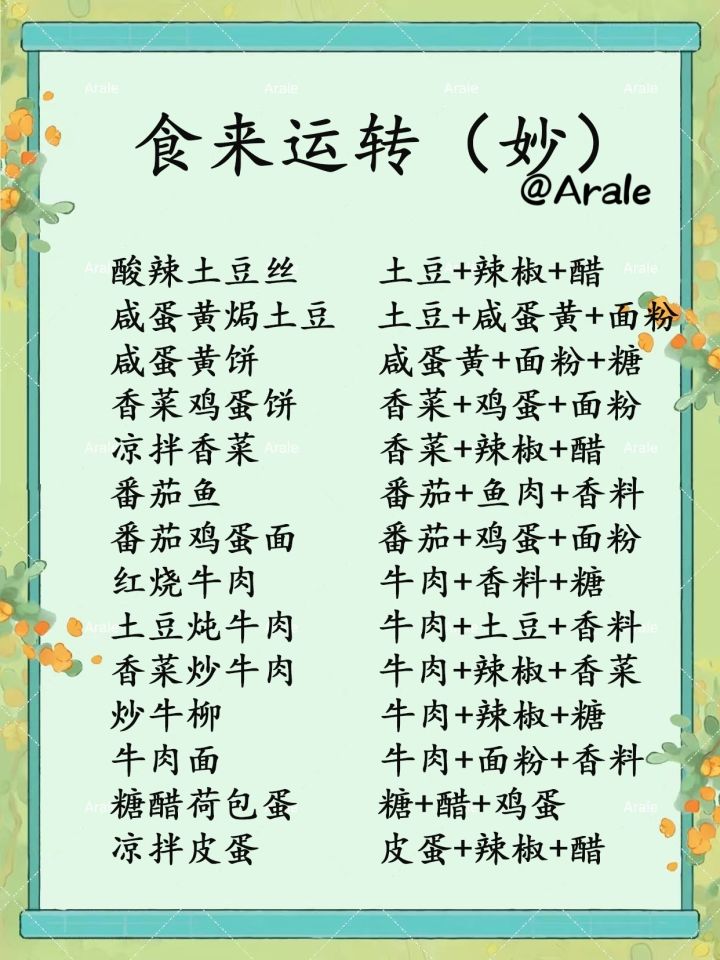 食来运转（妙）
@Arale
酸辣土豆丝 土豆+辣椒+醋
咸蛋黄焗土豆 土豆+咸蛋黄+面粉
咸蛋黄饼 咸蛋黄+面粉+糖
香菜鸡蛋饼 香菜+鸡蛋+面粉
凉拌香菜 香菜+辣椒+醋
番茄鱼 番茄+鱼肉+香料
番茄鸡蛋面 番茄+鸡蛋+面粉
红烧牛肉 牛肉+香料+糖
土豆炖牛肉 牛肉+土豆+香料
香菜炒牛肉 牛肉+辣椒+香菜
炒牛柳 牛肉+辣椒+糖
牛肉面 牛肉+面粉+香料
糖醋荷包蛋 糖+醋+鸡蛋
凉拌皮蛋 皮蛋+辣椒+醋